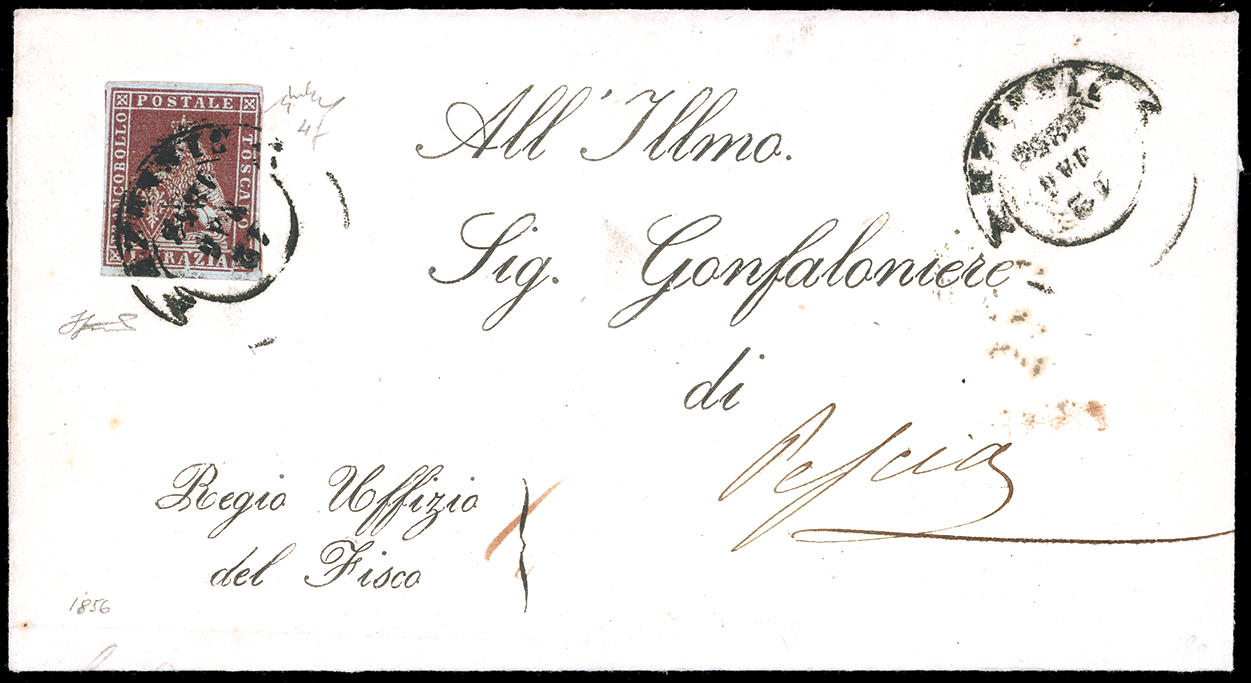 FRANCOBOLLO
POSTALE
TOSCANO
1 CRAZIA
47
All' Illmo.
Sig. Gonfaloniere
di
Pescia
Regio Uffizio
del Fisco
1856